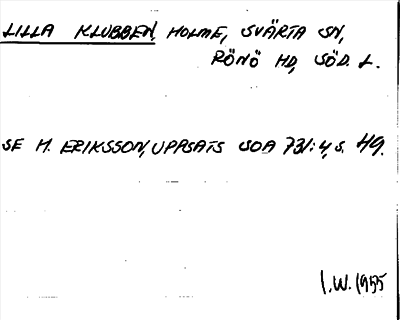 LILLA KLUBBEN, HOLME, SVÄRTA SN,
RÖNÖ HD, SÖD. L.
SE M. ERIKSSON, UPPSATS SOA 731:4, S. 49.
I.W. 1955